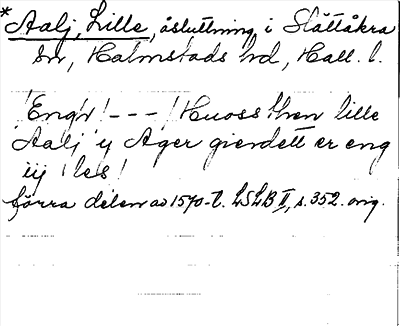 *Aalj, Lille, åsluttning i Slättåkra
sn, Halmstads hd, Hall. l.
"Engh! --- ! Huoss then lille
Aalj y Ager gierdett er eng
iij les!
förra delen av 1570-t. LSLB II, s. 352. orig.